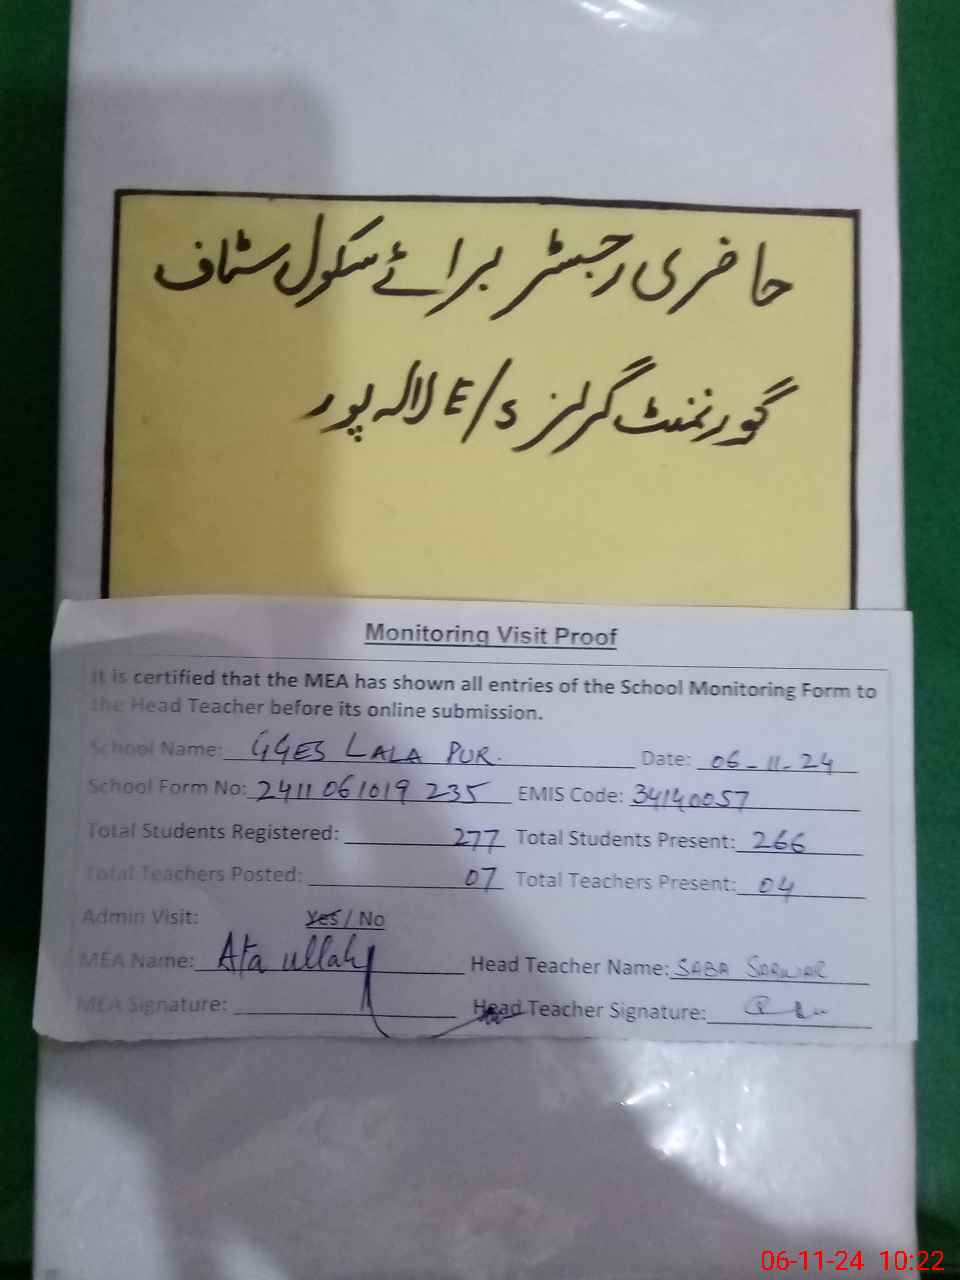 حاضری رجسٹر برائے سکول سٹاف
گورنمنٹ گرلز E/S لالہ پور
Monitoring Visit Proof
It is certified that the MEA has shown all entries of the School Monitoring Form to
the Head Teacher before its online submission.
School Name: GGES LALA PUR. Date: 06-11-24
School Form No: 2411 061019 235 EMIS Code: 34140057
Total Students Registered: 277 Total Students Present: 266
Total Teachers Posted: 07 Total Teachers Present: 04
Admin Visit: Yes / No
MEA Name: Ata ullah Head Teacher Name: SABA SARWAR
MEA Signature: Head Teacher Signature:
06-11-24 10:22